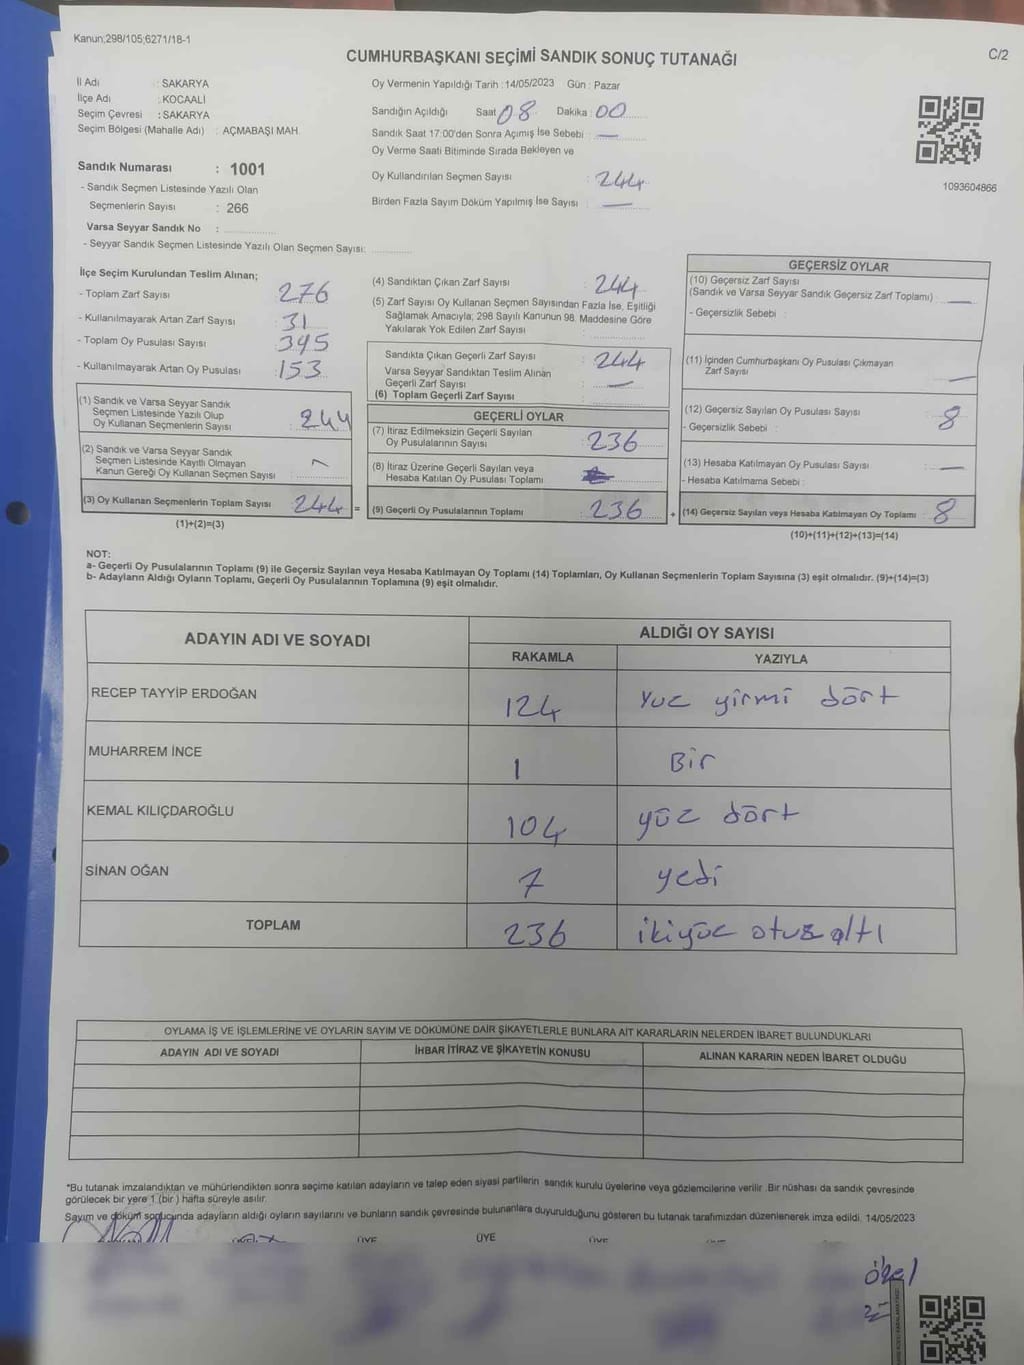 Kanun;298/105;6271/18-1
CUMHURBAŞKANI SEÇİMİ SANDIK SONUÇ TUTANAĞI
C/2
İl Adı : SAKARYA
İlçe Adı : KOCAALİ
Seçim Çevresi : SAKARYA
Seçim Bölgesi (Mahalle Adı) : AÇMABAŞI MAH.
Sandık Numarası : 1001
- Sandık Seçmen Listesinde Yazılı Olan
Seçmenlerin Sayısı : 266
Varsa Seyyar Sandık No :
- Seyyar Sandık Seçmen Listesinde Yazılı Olan Seçmen Sayısı:
Oy Vermenin Yapıldığı Tarih : 14/05/2023 Gün : Pazar
Sandığın Açıldığı Saat 08 Dakika : 00
Sandık Saat 17:00'den Sonra Açımış İse Sebebi : —
Oy Verme Saati Bitiminde Sırada Bekleyen ve
Oy Kullandırılan Seçmen Sayısı : 244
Birden Fazla Sayım Döküm Yapılmış İse Sayısı : —
1093604866
İlçe Seçim Kurulundan Teslim Alınan;
- Toplam Zarf Sayısı : 276
- Kullanılmayarak Artan Zarf Sayısı : 31
- Toplam Oy Pusulası Sayısı : 395
- Kullanılmayarak Artan Oy Pusulası : 153
(1) Sandık ve Varsa Seyyar Sandık
Seçmen Listesinde Yazılı Olup
Oy Kullanan Seçmenlerin Sayısı : 244
(2) Sandık ve Varsa Seyyar Sandık
Seçmen Listesinde Kayıtlı Olmayan
Kanun Gereği Oy Kullanan Seçmen Sayısı :
(3) Oy Kullanan Seçmenlerin Toplam Sayısı : 244 =
(1)+(2)=(3)
(4) Sandıktan Çıkan Zarf Sayısı : 244
(5) Zarf Sayısı Oy Kullanan Seçmen Sayısından Fazla İse, Eşitliği
Sağlamak Amacıyla; 298 Sayılı Kanunun 98. Maddesine Göre
Yakılarak Yok Edilen Zarf Sayısı :
Sandıkta Çıkan Geçerli Zarf Sayısı : 244
Varsa Seyyar Sandıktan Teslim Alınan
Geçerli Zarf Sayısı : —
(6) Toplam Geçerli Zarf Sayısı :
GEÇERLİ OYLAR
(7) İtiraz Edilmeksizin Geçerli Sayılan
Oy Pusulalarının Sayısı : 236
(8) İtiraz Üzerine Geçerli Sayılan veya
Hesaba Katılan Oy Pusulası Toplamı :
(9) Geçerli Oy Pusulalarının Toplamı : 236 +
GEÇERSİZ OYLAR
(10) Geçersiz Zarf Sayısı
(Sandık ve Varsa Seyyar Sandık Geçersiz Zarf Toplamı) : —
- Geçersizlik Sebebi :
(11) İçinden Cumhurbaşkanı Oy Pusulası Çıkmayan
Zarf Sayısı : —
(12) Geçersiz Sayılan Oy Pusulası Sayısı : 8
- Geçersizlik Sebebi :
(13) Hesaba Katılmayan Oy Pusulası Sayısı : —
- Hesaba Katılmama Sebebi :
(14) Geçersiz Sayılan veya Hesaba Katılmayan Oy Toplamı : 8
(10)+(11)+(12)+(13)=(14)
NOT:
a- Geçerli Oy Pusulalarının Toplamı (9) ile Geçersiz Sayılan veya Hesaba Katılmayan Oy Toplamı (14) Toplamları, Oy Kullanan Seçmenlerin Toplam Sayısına (3) eşit olmalıdır. (9)+(14)=(3)
b- Adayların Aldığı Oyların Toplamı, Geçerli Oy Pusulalarının Toplamına (9) eşit olmalıdır.
ADAYIN ADI VE SOYADI
ALDIĞI OY SAYISI
RAKAMLA YAZIYLA
RECEP TAYYİP ERDOĞAN 124 yüz yirmi dört
MUHARREM İNCE 1 Bir
KEMAL KILIÇDAROĞLU 104 yüz dört
SİNAN OĞAN 7 yedi
TOPLAM 236 ikiyüz otuz altı
OYLAMA İŞ VE İŞLEMLERİNE VE OYLARIN SAYIM VE DÖKÜMÜNE DAİR ŞİKAYETLERLE BUNLARA AİT KARARLARIN NELERDEN İBARET BULUNDUKLARI
ADAYIN ADI VE SOYADI İHBAR İTİRAZ VE ŞİKAYETİN KONUSU ALINAN KARARIN NEDEN İBARET OLDUĞU
*Bu tutanak imzalandıktan ve mühürlendikten sonra seçime katılan adayların ve talep eden siyasi partilerin sandık kurulu üyelerine veya gözlemcilerine verilir .Bir nüshası da sandık çevresinde
görülecek bir yere 1 (bir ) hafta süreyle asılır.
Sayım ve döküm sonucunda adayların aldığı oyların sayılarını ve bunların sandık çevresinde bulunanlara duyurulduğunu gösteren bu tutanak tarafımızdan düzenlenerek imza edildi. 14/05/2023
ÜYE ÜYE ÜYE
özel